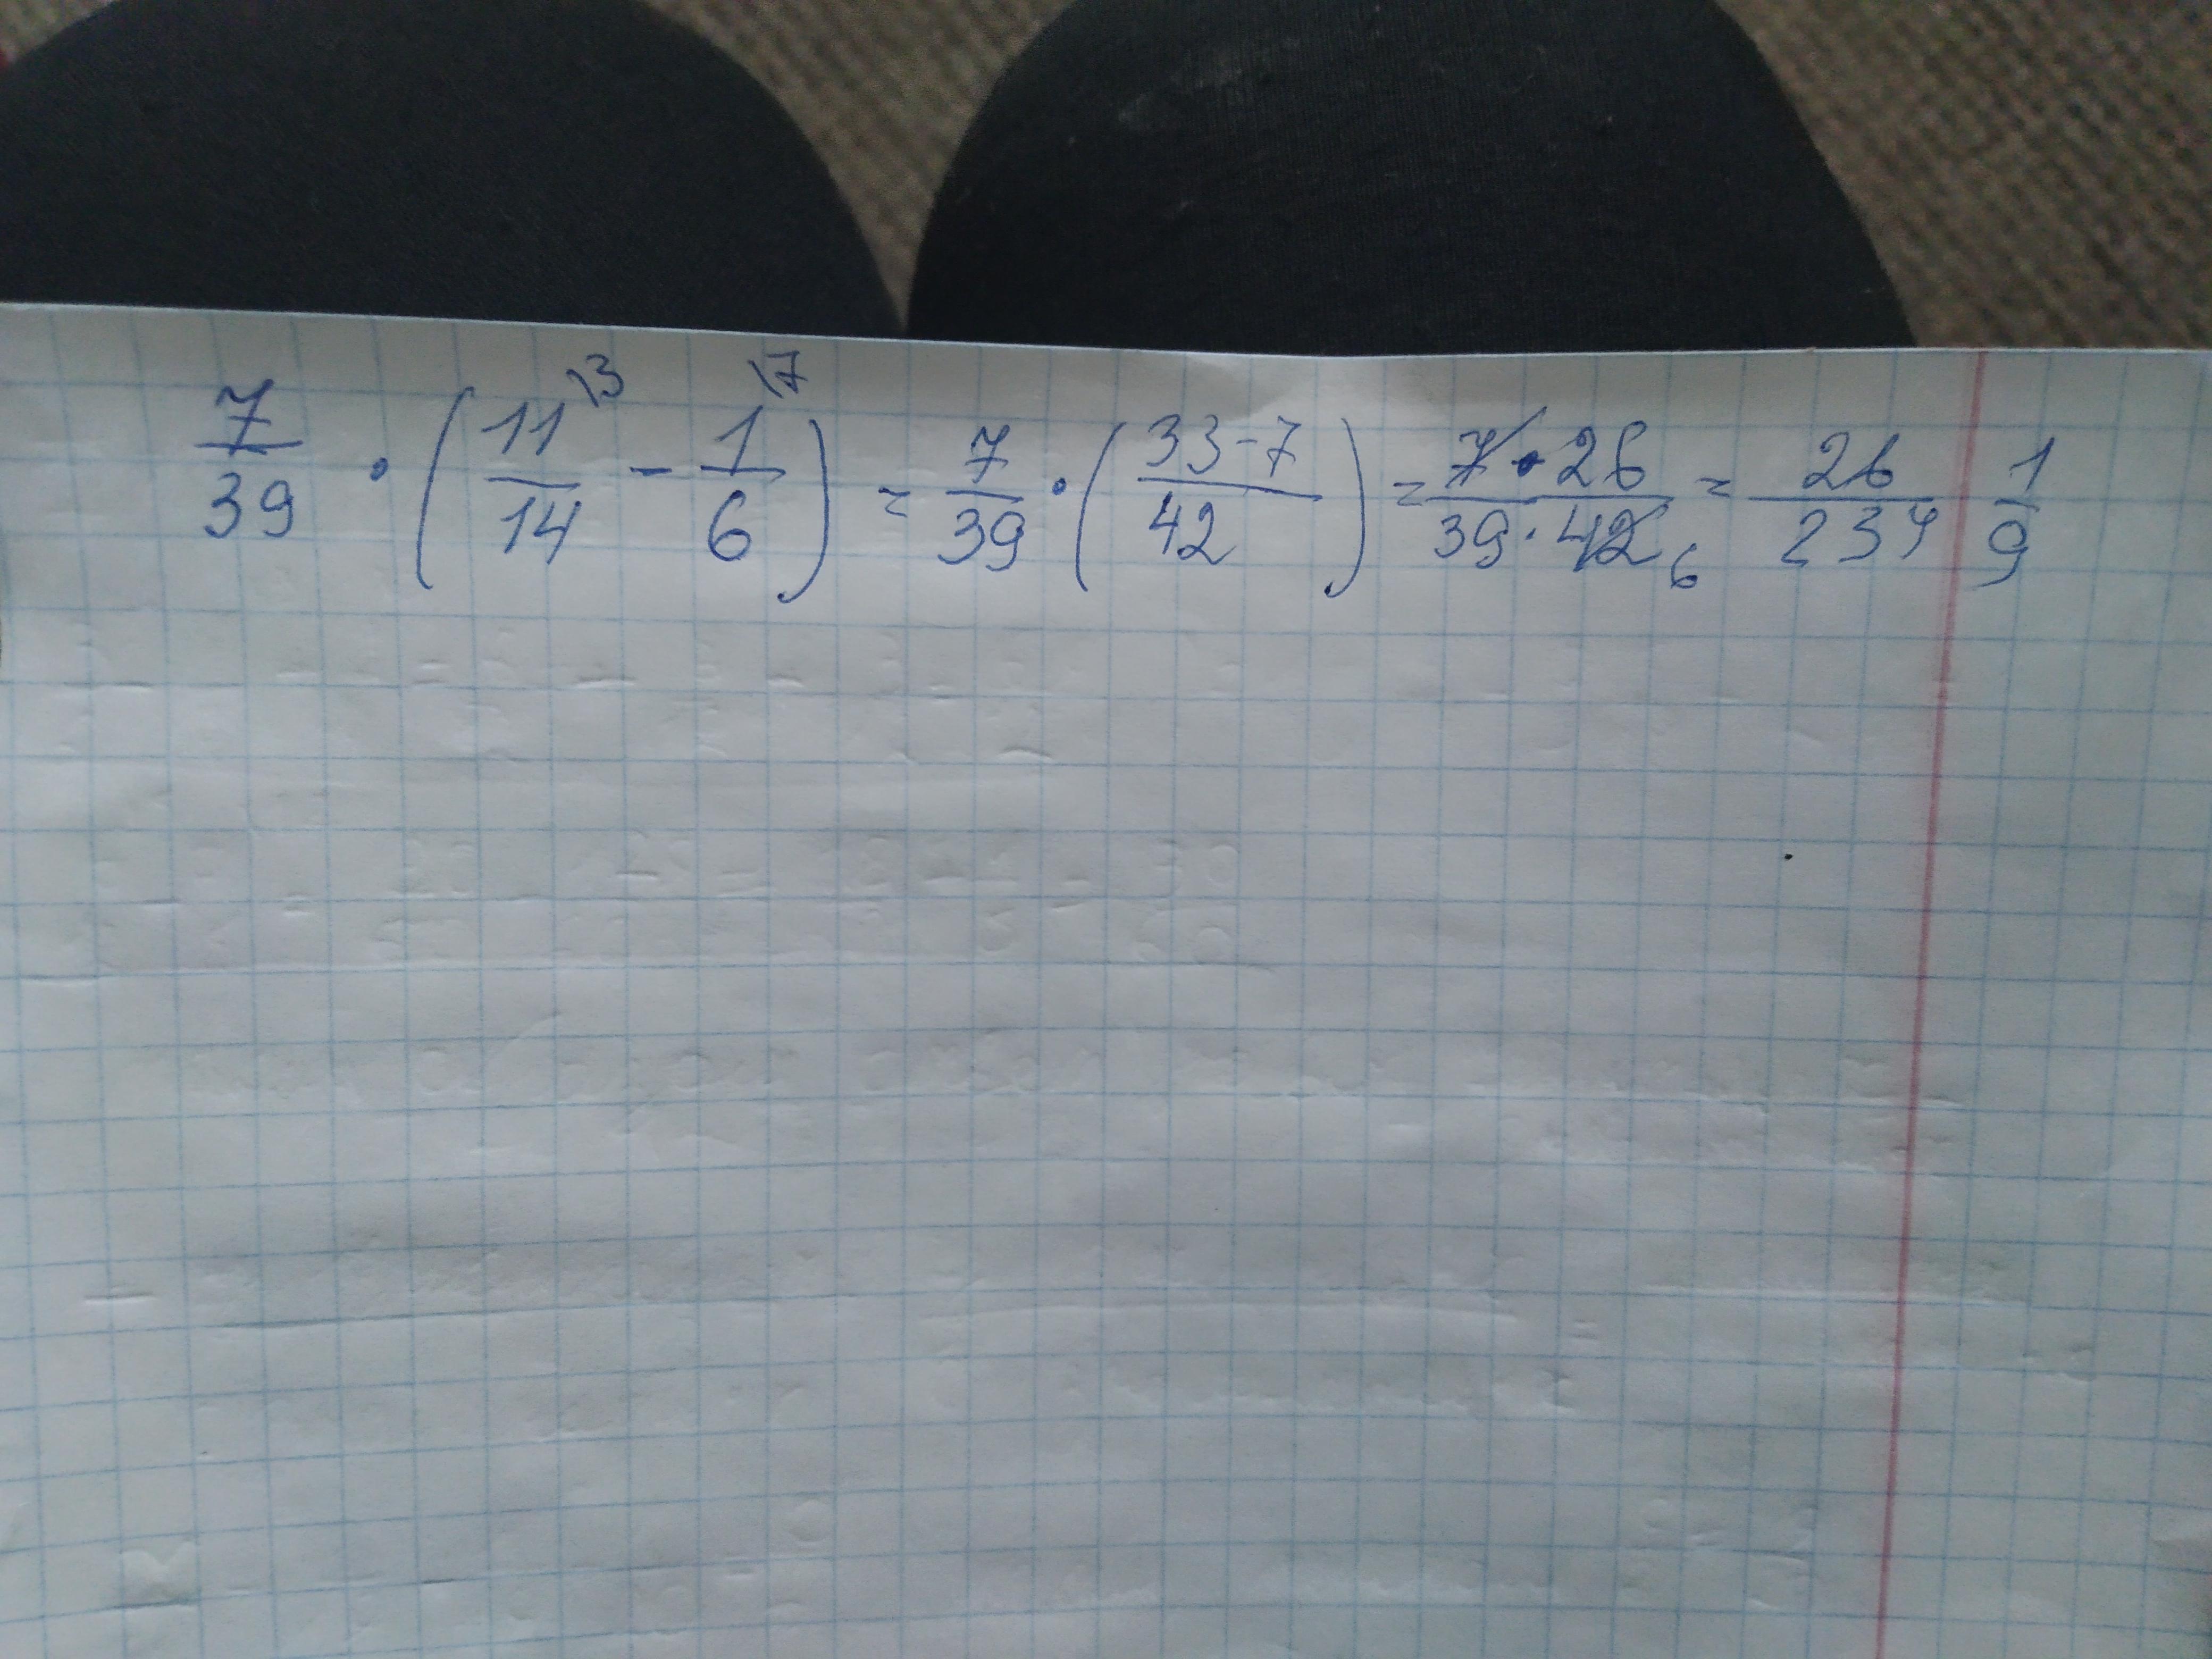 7/39 · (11/14 \3 - 1/6 \7) = 7/39 · (33-7/42) = 7·26/39·42 6 = 26/234 1/9